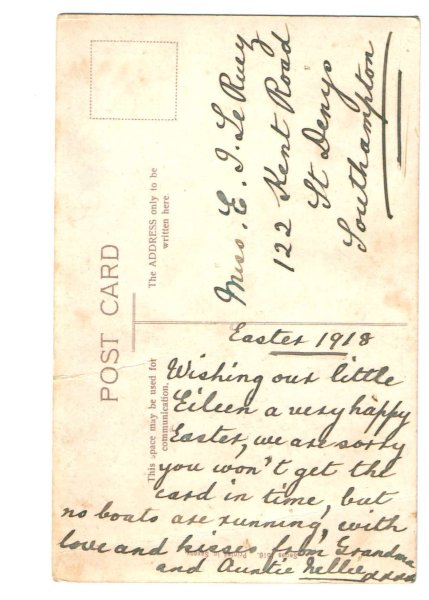 POST CARD
The ADDRESS only to be
written here
Miss. E. J. Le Ruez
122 Kent Road
St Denys
Southampton
This space may be used for
communication.
Easter 1918
Wishing our little
Eileen a very happy
Easter, we are sorry
you won't get the
card in time, but
no boats are running, with
love and kisses from Grandma
and Auntie Nellie xxxxx
Printed in